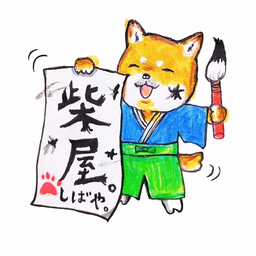 柴屋。
しばや。